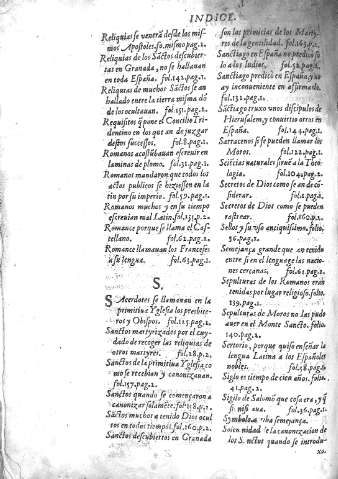 INDICE.
Reliquias se venerã desde los mis
mos Apostoles. fo. mismo pag. 2.
Reliquias de los Sãctos descubier
tas en Granada, no se hallauan
en toda España. fol. 142. pag. 1.
Reliquias de muchos Sãctos se an
hallado entre la tierra misma dõ
de los ocultauan. fol. 151. pag. 1.
Requisitos q̃ pone el Concilio Tri
dentino en los que an de juzgar
destos successos. fol. 8. pag. 2.
Romanos acostũbauan escreuir en
laminas de plomo. fol. 31. pag. 2.
Romanos mandaron que todos los
actos publicos se hiziessen en la
tin por su imperio. fol. 59. pag. 1.
Romanos muchos y en su tiempo
escreuian mal Latin. fol. 151. p. 2.
Romance porque se llama el Cas-
tellano. fol. 62. pag. 2.
Romance llamauan los Franceses
a su lengua. fol. 63. pag. 1.
S.
SAcerdotes se llamauan en la
primitiua Yglesia los presbite
ros y Obispos. fol. 115. pag. 2.
Sanctos martyrizados por el cuy-
dado de recoger las reliquias de
otros martyres. fol. 28. p. 2.
Sanctos de la primitiua Yglesia, co
mo se recebian y canonizauan.
fol. 157. pag. 2.
Sanctos quando se començaron a
canonizar solamẽte. fol. 158. p. 1.
Sãctos muchos a tenido Dios ocul
tos en todos tiempos. fol. 160. p. 2.
Sanctos descubiertos en Granada
son las primicias de los Marty-
res de la gentilidad. fol. 163. p. 1.
Sanctiago en España no predicò so
lo a los Iudios. fol. 52. pag. 1.
Sanctiago predicò en España y no
ay inconueniente en affirmarlo.
fol. 132. pag. 2.
Sanctiago truxo unos discipulos de
Hierusalem, y conuirtio otros en
España. fol. 144. pag. 1.
Sarracenos si se pueden llamar los
Moros. fol. 122. pag. 2.
Sciẽcias naturales siruẽ a la Teo-
logia. fol. 204. pag. 2.
Secretos de Dios como se an de cõ
siderar. fol. 1. pag. 2.
Secretos de Dios como se pueden
rastrear. fol. 160. p. 2.
Sellos y su vso antiquissimo. folio.
36. pag. 1.
Semejança grande que an tenido
entre si en el lenguage las nacio-
nes cercanas. fol. 61. pag. 1.
Sepulturas de los Romanos eran
tenidas por lugar religioso. folio.
139. pag. 1.
Sepulturas de Moros no las pudo
auer en el Monte Sancto. folio.
140. pag. 2.
Sertorio, porque quiso enseñar la
lengua Latina a los Españoles
nobles. fol. 58. pag. 2.
Siglo es tiempo de cien años. folio.
41. pag. 2.
Sigilo de Salomõ que cosa era, y q̃
si nisi aua. fol. 36. pag. 1.
Symbolo era semejança.
Solennidad de la canonizacion de
los Sanctos quando se introdu-
xo.